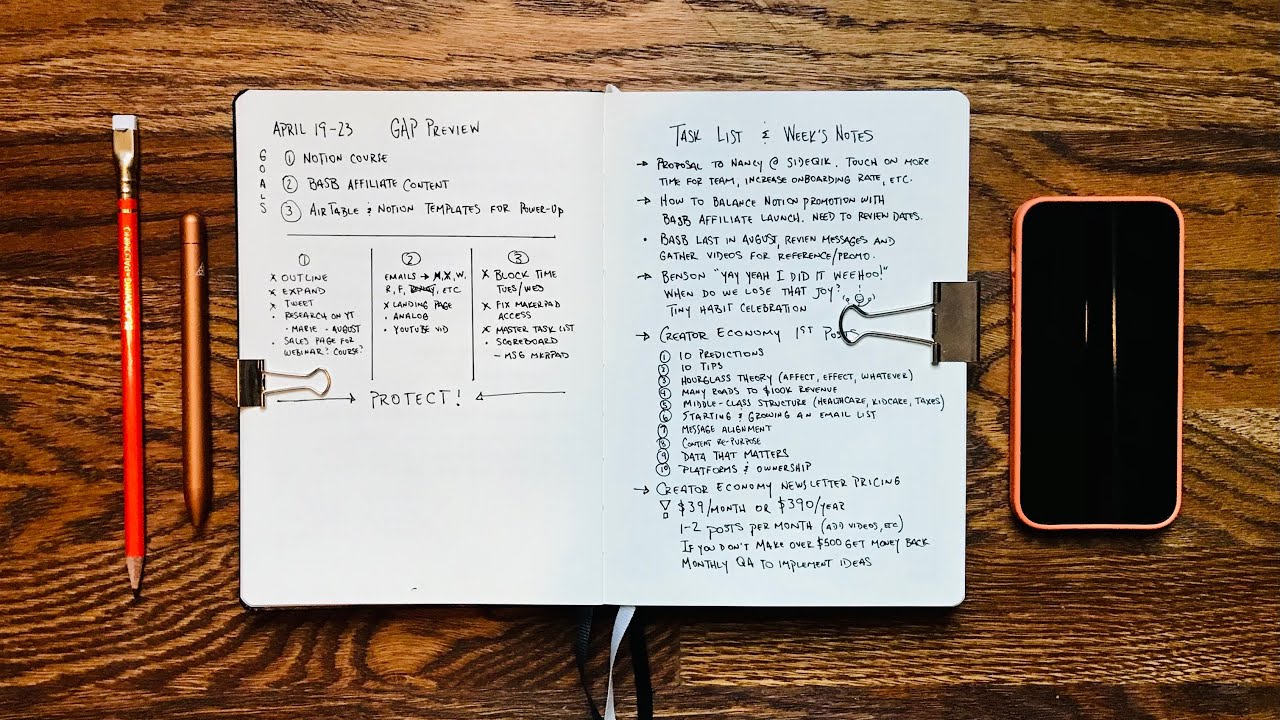 APRIL 19-23 GAP PREVIEW
GOALS
① NOTION COURSE
② BASB AFFILIATE CONTENT
③ AIRTABLE & NOTION TEMPLATES FOR POWER-UP
①
X OUTLINE
X EXPAND
X TWEET
• RESEARCH ON YT
• MARIE • AUGUST
• SALES PAGE FOR
WEBINAR? COURSE?
②
EMAILS → M, X, W,
R, F, ETC
X LANDING PAGE
• ANALOG
• YOUTUBE VID
③
X BLOCK TIME
TUES/WED
X FIX MAKERPAD
ACCESS
X MASTER TASK LIST
• SCOREBOARD
- MSG MKRPAD
→ PROTECT! ←
TASK LIST & WEEK'S NOTES
→ PROPOSAL TO NANCY @ SIDEQIK. TOUCH ON MORE
TIME FOR TEAM, INCREASE ONBOARDING RATE, ETC.
→ HOW TO BALANCE NOTION PROMOTION WITH
BASB AFFILIATE LAUNCH. NEED TO REVIEW DATES.
• BASB LAST IN AUGUST, REVIEW MESSAGES AND
GATHER VIDEOS FOR REFERENCE/PROMO.
→ BENSON "YAY YEAH I DID IT WEEHOO!"
WHEN DO WE LOSE THAT JOY?
TINY HABIT CELEBRATION
→ CREATOR ECONOMY 1ST POS
① 10 PREDICTIONS
② 10 TIPS
③ HOURGLASS THEORY (AFFECT, EFFECT, WHATEVER)
④ MANY ROADS TO $100K REVENUE
⑤ MIDDLE-CLASS STRUCTURE (HEALTHCARE, KIDCARE, TAXES)
⑥ STARTING & GROWING AN EMAIL LIST
⑦ MESSAGE ALIGNMENT
⑧ CONTENT RE-PURPOSE
⑨ DATA THAT MATTERS
⑩ PLATFORMS & OWNERSHIP
→ CREATOR ECONOMY NEWSLETTER PRICING
$39/MONTH OR $390/YEAR
1-2 POSTS PER MONTH (ADD VIDEOS, ETC)
IF YOU DON'T MAKE OVER $500 GET MONEY BACK
MONTHLY QA TO IMPLEMENT IDEAS